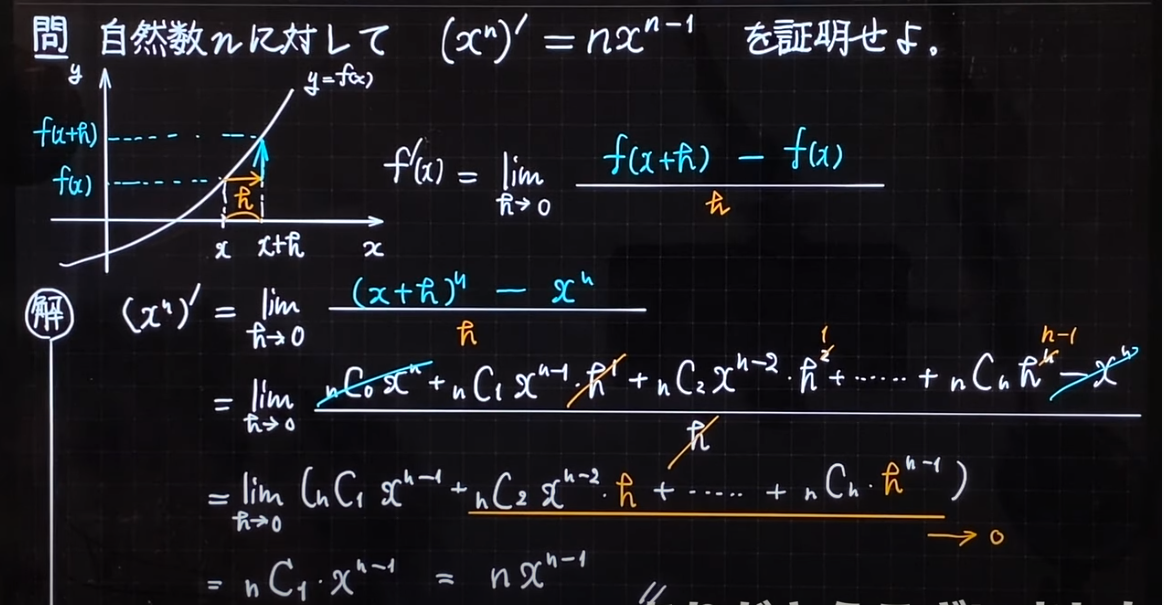 問 自然数nに対して (xⁿ)′ = nxⁿ⁻¹ を証明せよ。
y
y=f(x)
f(x+h)
f(x)
h
x x+h x
f′(x) = lim h→0 f(x+h) − f(x) / h
解 (xⁿ)′ = lim h→0 (x+h)ⁿ − xⁿ / h
1 n-1
= lim h→0 ₙC₀xⁿ + ₙC₁xⁿ⁻¹·h¹ + ₙC₂xⁿ⁻²·h² + …… + ₙCₙhⁿ − xⁿ / h
= lim h→0 (ₙC₁xⁿ⁻¹ + ₙC₂xⁿ⁻²·h + ····· + ₙCₙ·hⁿ⁻¹)
→ 0
= ₙC₁·xⁿ⁻¹ = nxⁿ⁻¹ //